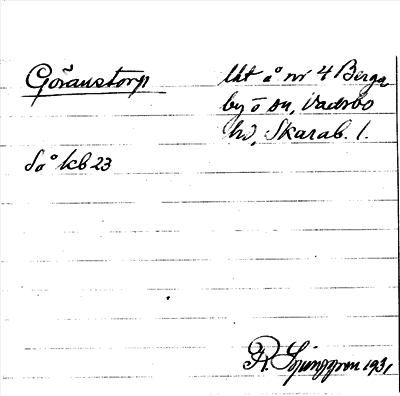 Göranstorp
lht å nr 4 Berga
by o sn, Vadsbo
hd, Skarab. l.
So° kb 23
R. Ljunggren 1931